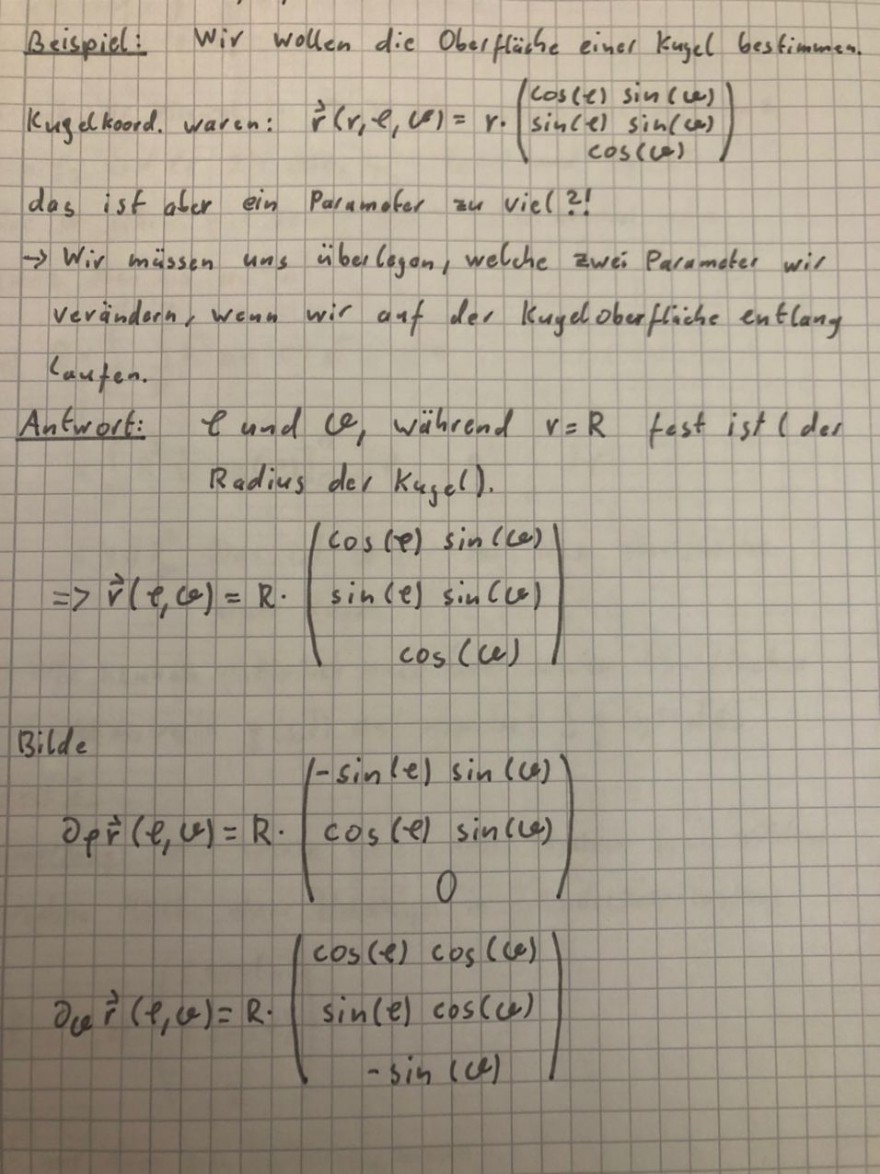 Beispiel: Wir wollen die Oberfläche einer Kugel bestimmen.
Kugelkoord. waren: r⃗(r,φ,ϑ) = r· (cos(φ) sin(ϑ)
sin(φ) sin(ϑ)
cos(ϑ))
das ist aber ein Parameter zu viel?!
→ Wir müssen uns überlegen, welche zwei Parameter wir
verändern, wenn wir auf der Kugeloberfläche entlang
laufen.
Antwort: φ und ϑ, während r=R fest ist (der
Radius der Kugel).
=> r⃗(φ,ϑ) = R· (cos(φ) sin(ϑ)
sin(φ) sin(ϑ)
cos(ϑ))
Bilde
∂φ r⃗(φ,ϑ) = R· (-sin(φ) sin(ϑ)
cos(φ) sin(ϑ)
0)
∂ϑ r⃗(φ,ϑ) = R· (cos(φ) cos(ϑ)
sin(φ) cos(ϑ)
-sin(ϑ))